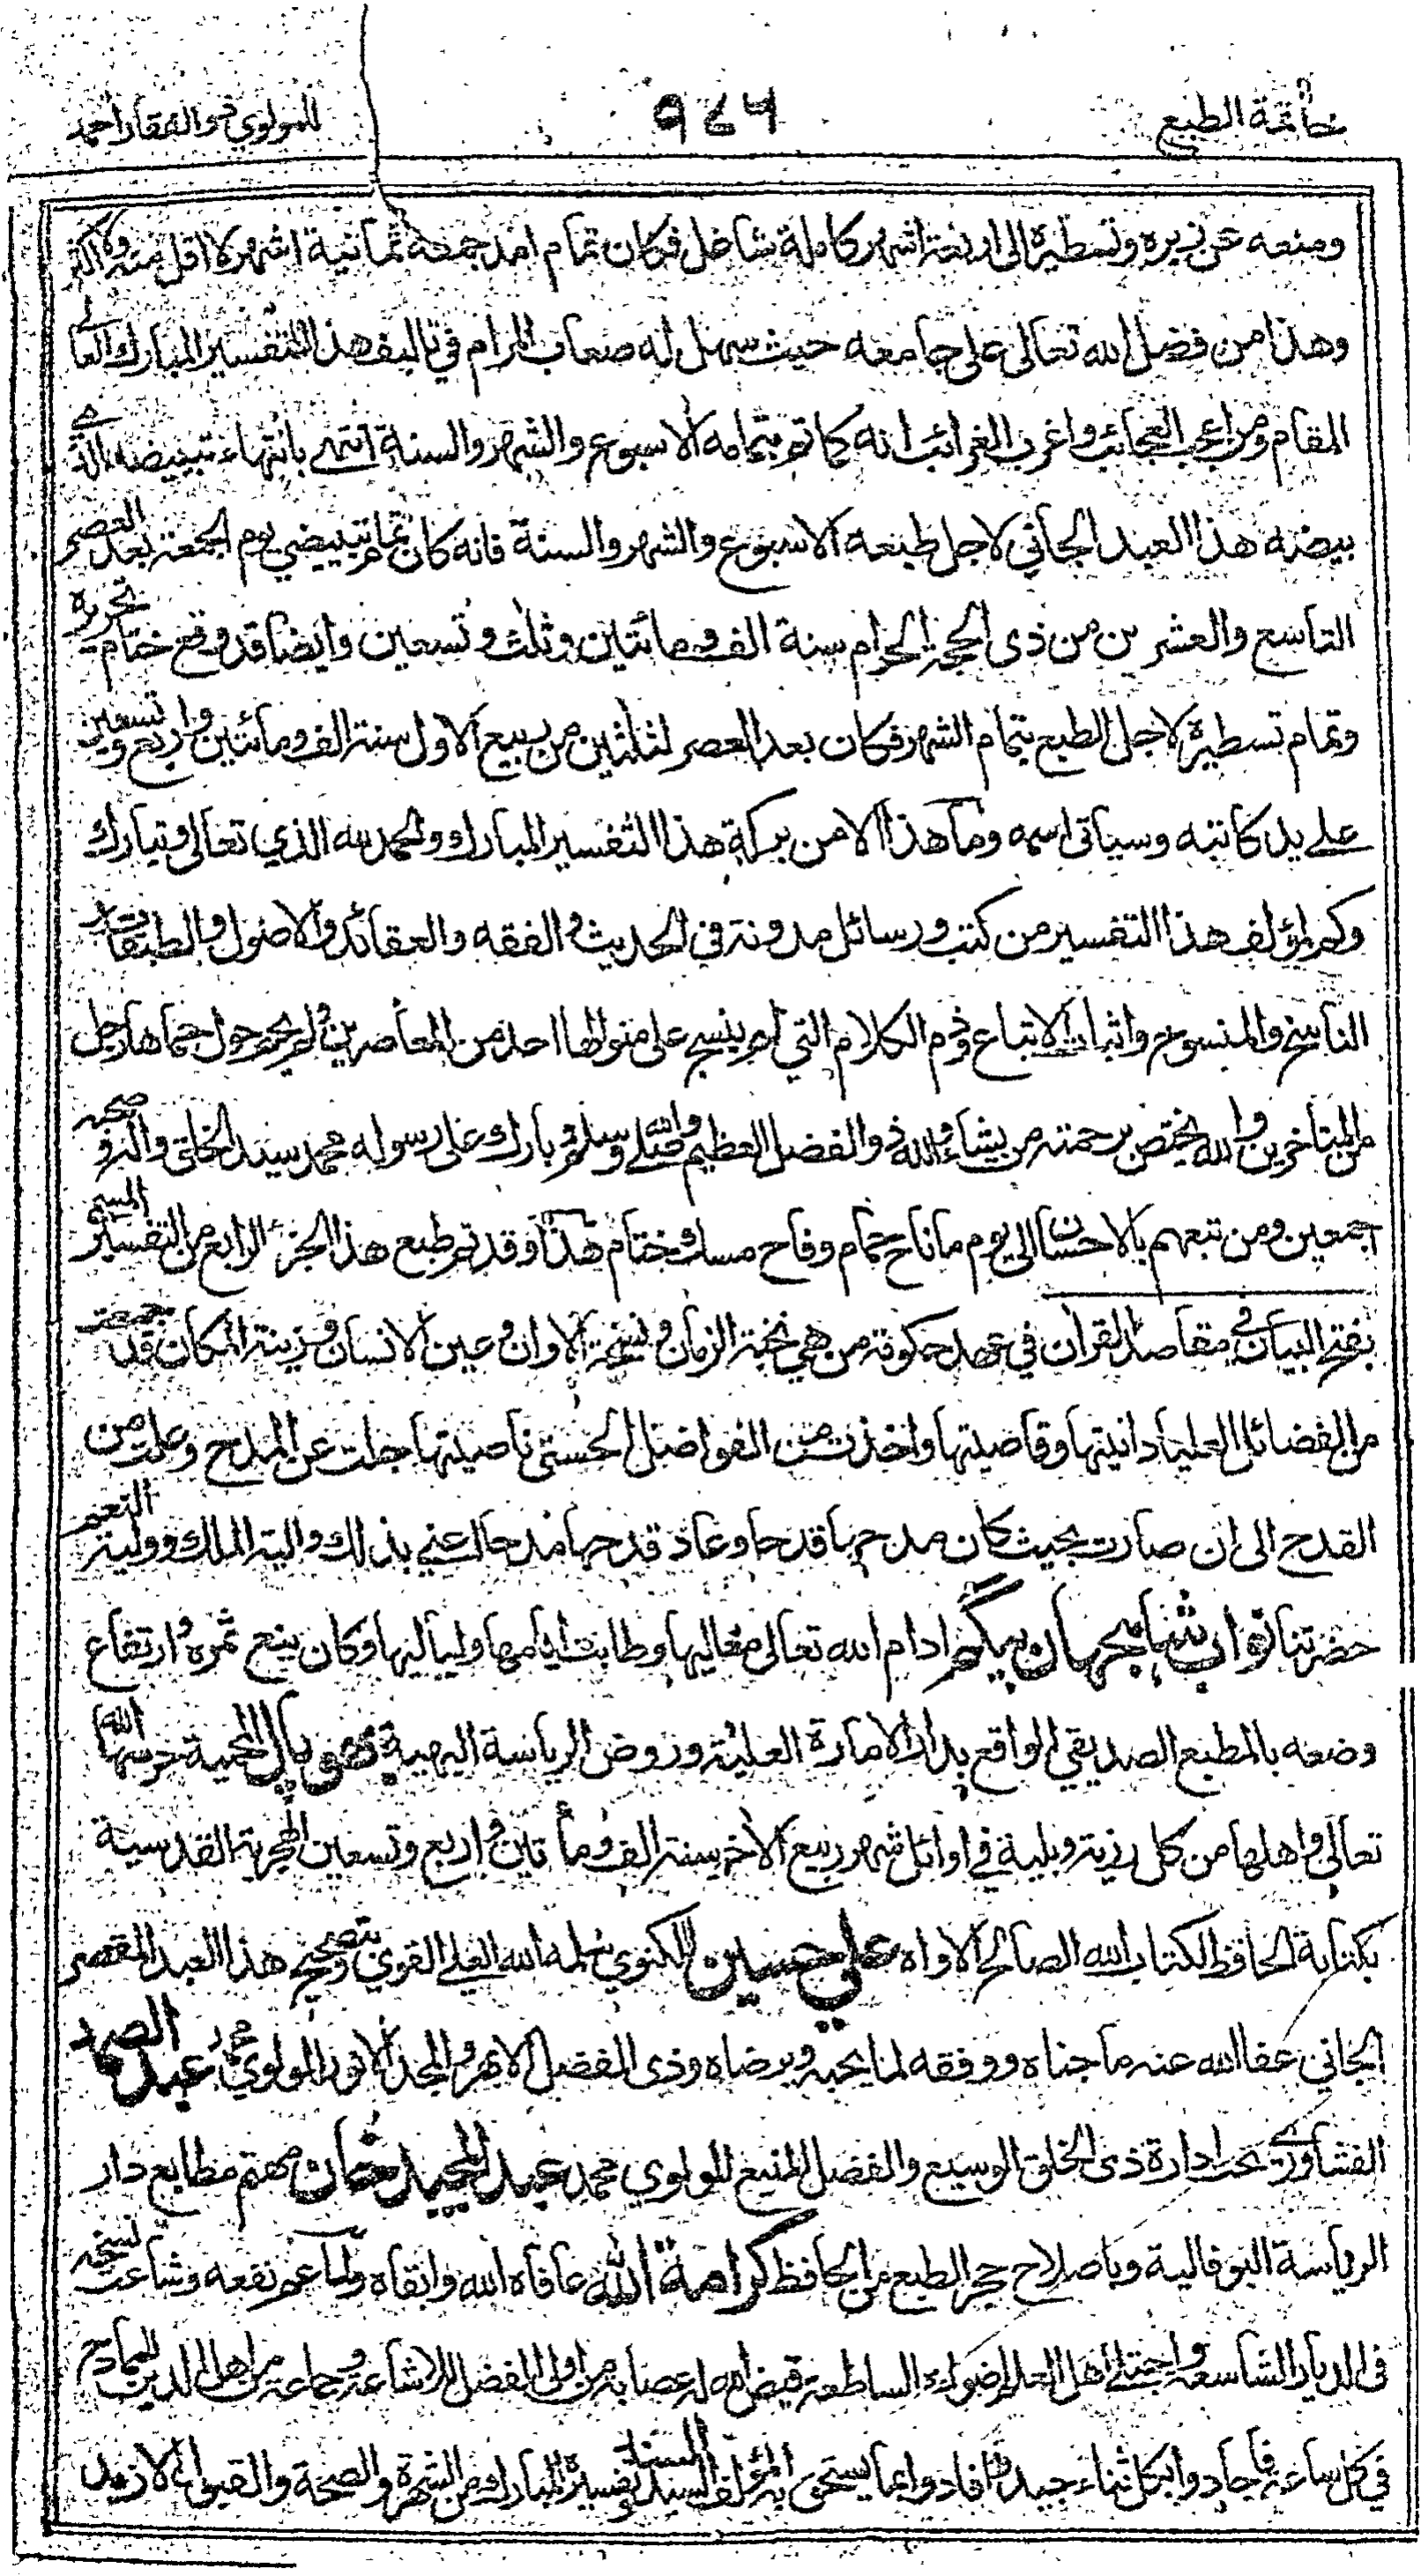 خاتمة الطبع
٩٤٦
للمولوي ذوالفقار احمد
ومنعه عن زبره وتسطيره الى اربعة اشهر كاملة شاغل فكان تمام امد جمعه ثمانية اشهر لا اقل منه ولا اكثر
وهذا من فضل الله تعالى على جامعه حيث سهل له صعاب المرام في تاليف هذا التفسير المبارك العالي
المقام ومن اعجب العجائب واغرب الغرائب انه كما تم بتمامه الاسبوع والشهر والسنة انتهى بانتهاء تبييضه الذي
بيضه هذا العبد الجاني لاجل طبعه الاسبوع والشهر والسنة فانه كان تمام تبييضي يوم الجمعة بعد العصر
التاسع والعشرين من ذى الحجة الحرام سنة الف ومائتين وثلث وتسعين وايضا قد وقع ختام تحريره
وتمام تسطيره لاجل الطبع بتمام الشهر فكان بعد العصر لثلثين من ربيع الاول سنة الف ومائتين واربع وتسعين
على يد كاتبه وسياتى اسمه وما هذا الا من بركة هذا التفسير المبارك ولحمد لله الذي تعالى وتبارك
وكم لمؤلف هذا التفسير من كتب ورسائل مدونة في الحديث والفقه والعقائد والاصول والطبقات
الناسخ والمنسوخ واثبات الاتباع وذم الكلام التي لم ينسج على منوالها احد من المعاصرين ولم يحم حول حماها رجل
من المتاخرين والله يختص برحمته من يشاء والله ذو الفضل العظيم وصلى الله وسلم وبارك على رسوله محمد سيد الخلق واله وصحبه
اجمعين ومن تبعهم بالاحسان الى يوم ما ناح حمام وفاح مسك ختام هذا وقد تم طبع هذا الجزء الرابع من التفسير المسمى
بفتح البيان في مقاصد القران في عهد حكومة من هي نخبة الزمان ونسخة الاوان وعين الانسان وزينة المكان قد جمعت
من الفضائل العليا دانيتها وقاصيتها واخذت من الفواضل الحسنى ناصيتها جلت عن المدح وعلت من
القدح الى ان صارت بحيث كان مدحها قدحا وعاد قدحها مدحا اعني بذلك والية الملك وولية النعم
حضرتنا نواب شاهجهان بيگم ادام الله تعالى معاليها وطابت ايامها ولياليها وكان ينع ثمره وارتفاع
وضعه بالمطبع الصديقي الواقع بدار الامارة العلية وروض الرياسة البهية بهوپال المحمية حرسها الله
تعالى واهلها من كل رزية وبلية في اوائل شهر ربيع الاخر سنة الف ومأتين واربع وتسعين الهجرية القدسية
بكتابة الحافظ لكتاب الله الصالح الاواه علي حسين اللكنوي سلمه الله العلي القوي وتصحيح هذا العبد المقصر
الجاني عفا الله عنه ما جناه ووفقه لما يحبه ويرضاه وذى الفضل الابهر والمجد الانور المولوي محمد عبد الصمد
الفشاوري تحت ادارة ذى الخلق الوسيع والفضل المنيع المولوي محمد عبد المجيد خان مهتم مطابع دار
الرياسة البوفالية وباصلاح حجر الطبع من الحافظ كرامة الله عافاه الله وابقاه ولما عم نفعه وشاعت نسخه
في الديار الشاسعة واجتلى اهل العلم اضواءه الساطعة قيض الله له عصابة من اولى الفضل للاشاعة وجماعة من اهل الدين للمادح
في كل ساعة فاجادوا بكل ثناء جيد وافادوا بما يستحق به المؤلف السيد السند وتفسيره المبارك من الشهرة والصحة والقبول الازيد